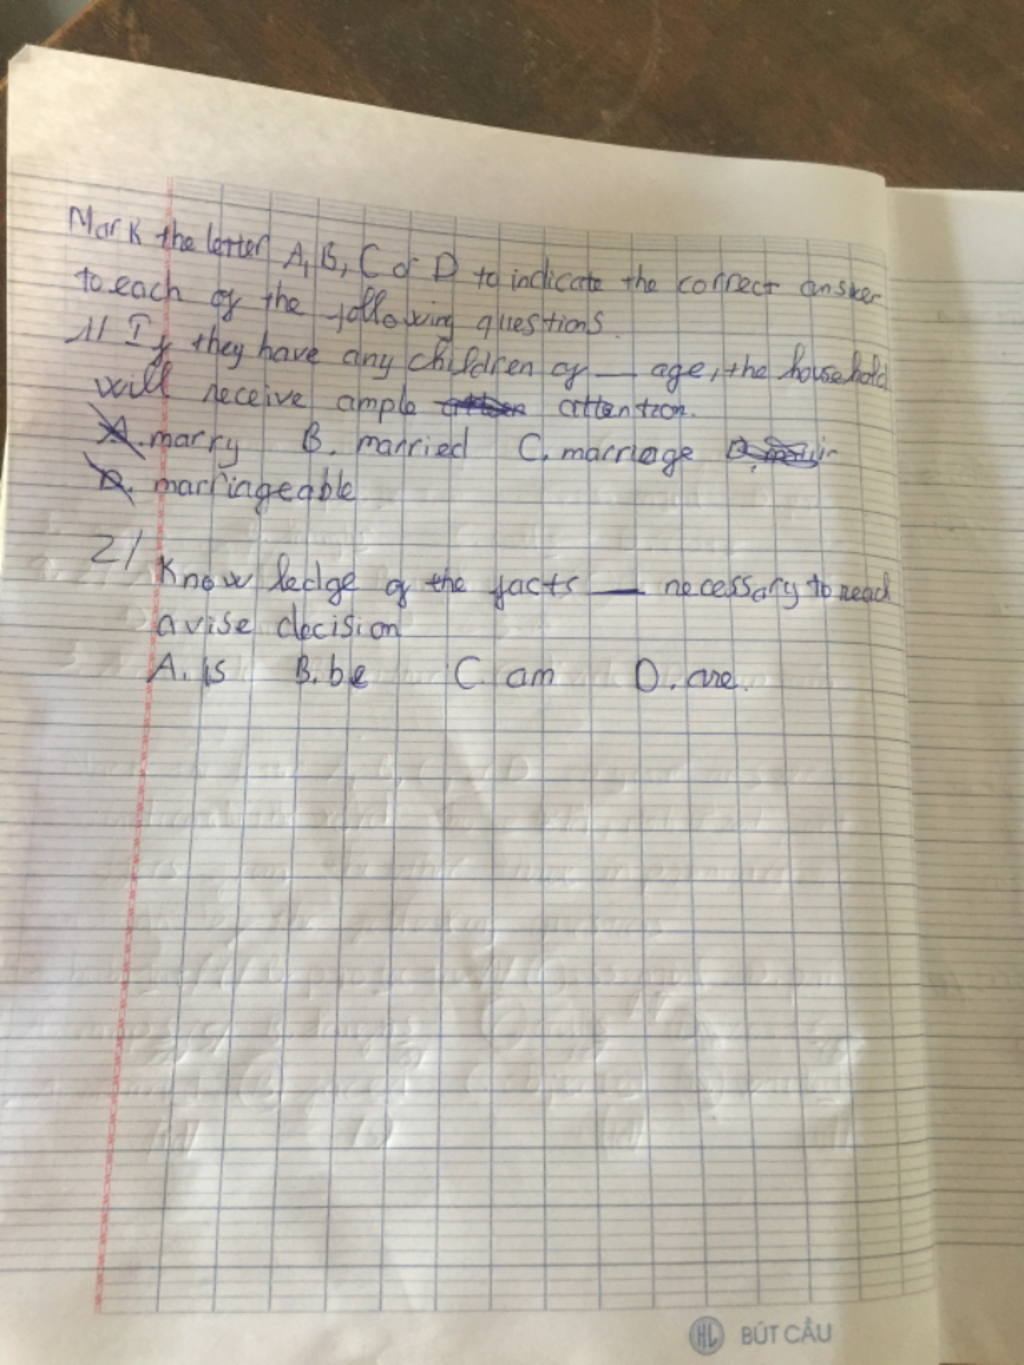 Mark the letter A, B, C or D to indicate the correct answer
to each of the following questions.
1/ If they have any children of __ age, the household
will receive ample attention.
A. marry B. married C. marriage
D. marriageable
2/ Knowledge of the facts __ necessary to reach
a vise decision
A. is B. be C. am D. are.
HL BÚT CẦU